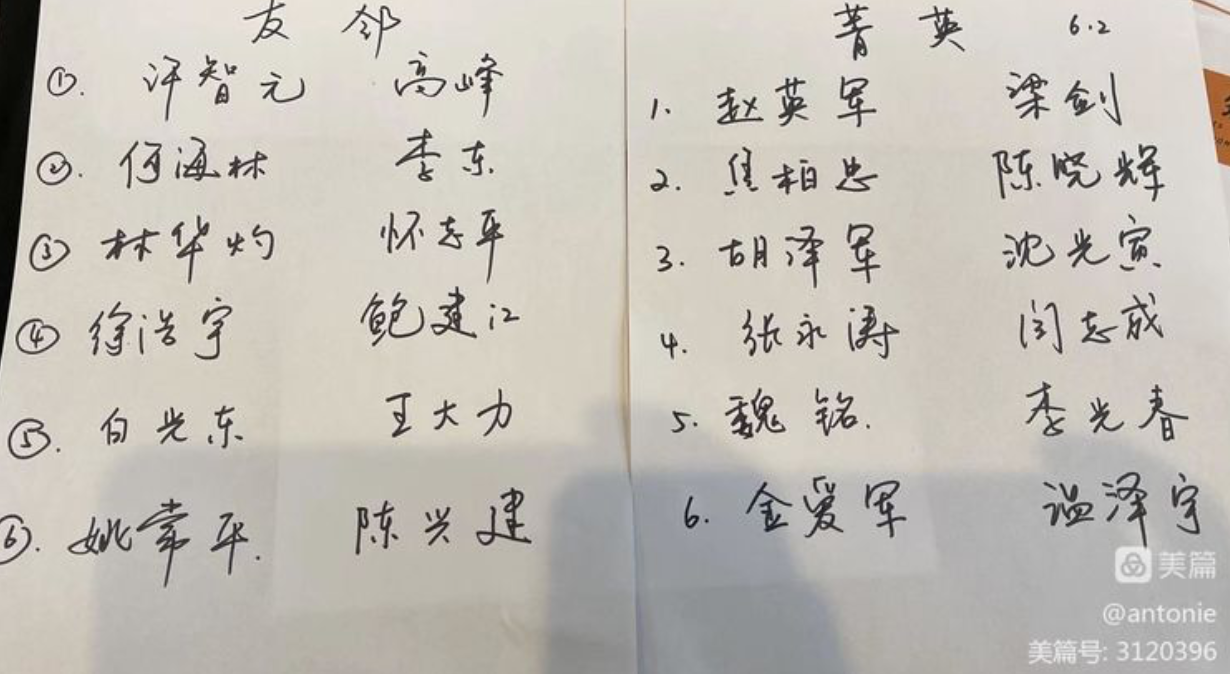 友邻
①. 许智元 高峰
②. 何海林 李东
③ 林华灼 怀志平
④ 徐浩宇 鲍建江
⑤. 白光东 王大力
⑥. 姚常平. 陈兴建
菁英 6.2
1. 赵英军 梁剑
2. 焦柏忠 陈晓辉
3. 胡泽军 沈光寅
4. 张永涛 闫志成
5. 魏铭. 李光春
6. 金爱军 温泽宇
美篇
@antonie
美篇号: 3120396